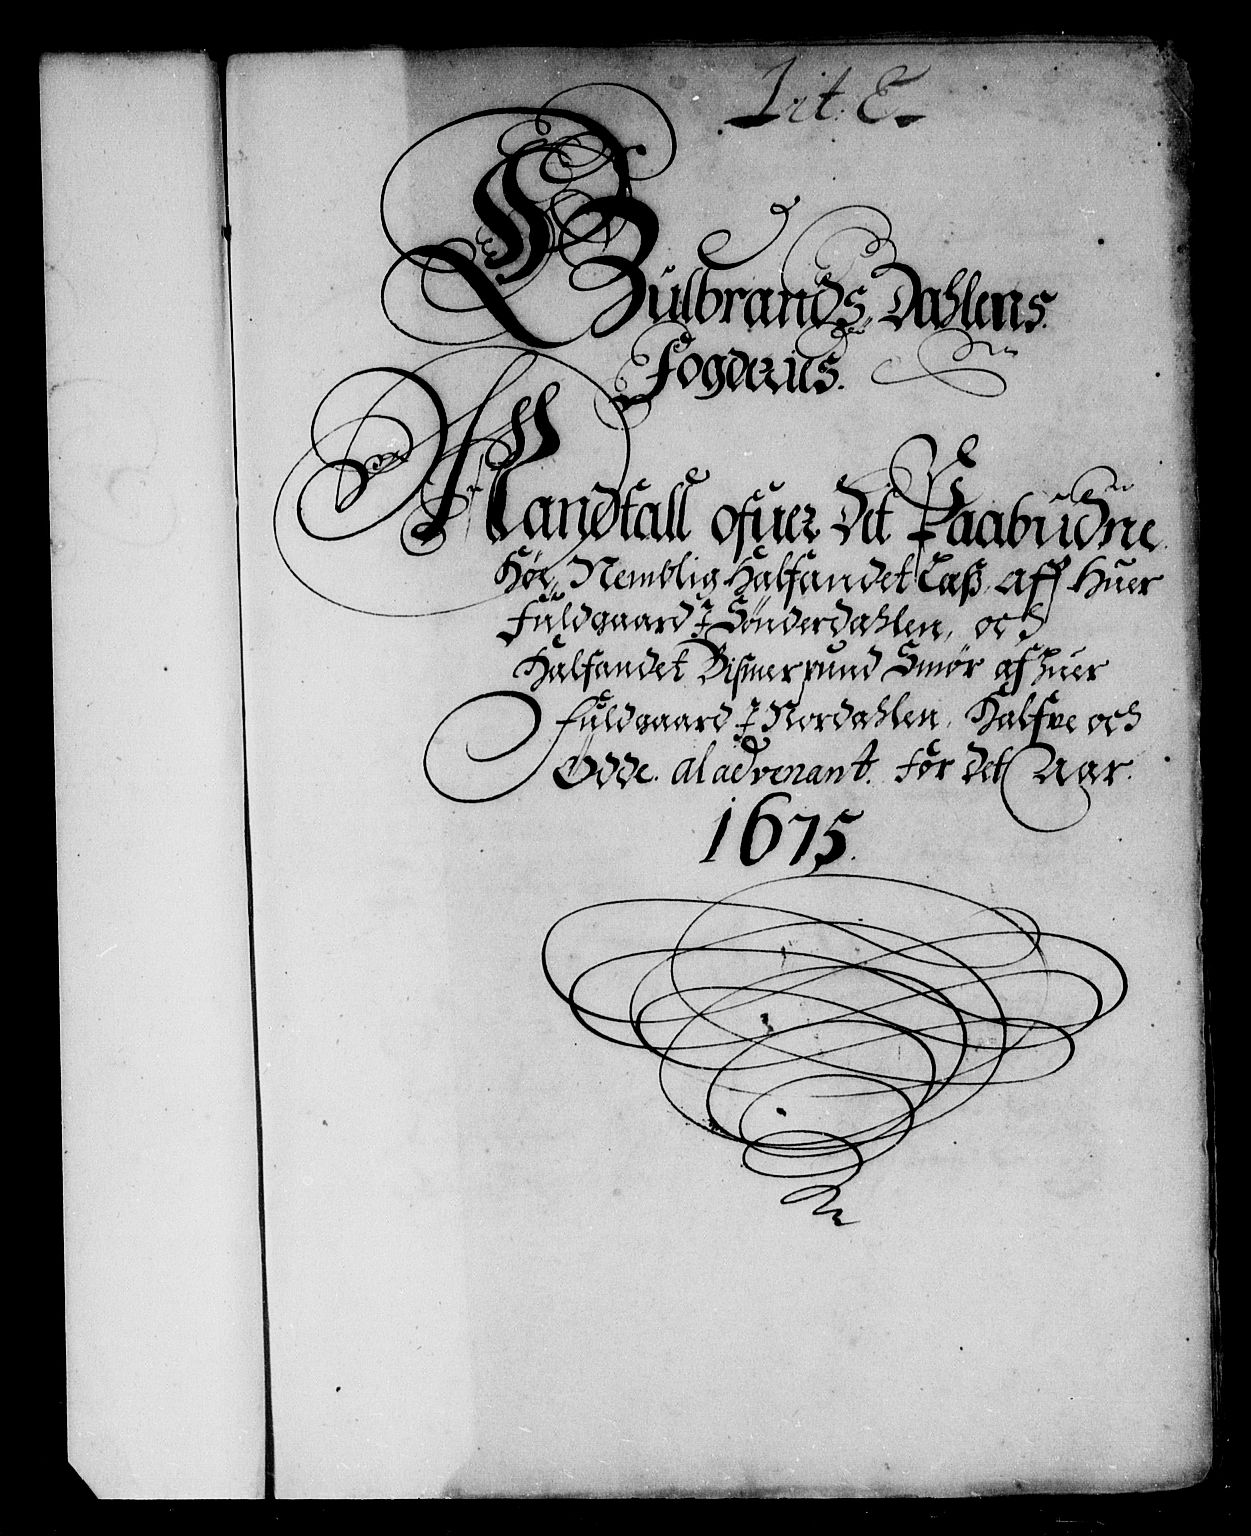 Lit. E.
Gulbrands Dahlens
Fogderies.
Mandtall ofuer det Paabudne
Høe, Nemblig Halfandet Lass, aff Huer
Fuldgaard I Sønderdahlen, och
Halfandet Bismerpund Smør af huer
Fuldgaard I Nordahlen, Halfve och
Ødde. al advenant. for det Aar.
1675.